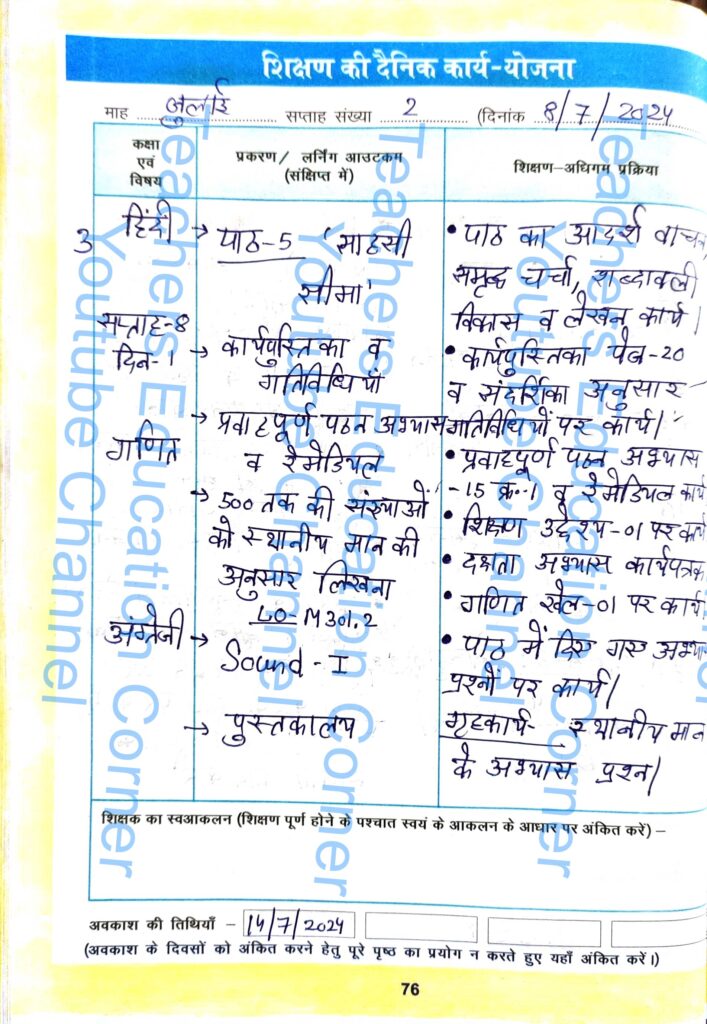 शिक्षण की दैनिक कार्य-योजना
माह जुलाई सप्ताह संख्या 2 (दिनांक 8/7/2024
कक्षा एवं विषय
प्रकरण / लर्निंग आउटकम (संक्षिप्त में)
शिक्षण-अधिगम प्रक्रिया
3 हिंदी
सप्ताह-8
दिन-1
गणित
अंग्रेजी
→ पाठ-5 'साहसी
सीमा'
→ कार्यपुस्तिका व
गतिविधियां
→ प्रवाहपूर्ण पठन अभ्यास
व रेमेडियल
→ 500 तक की संख्याओं
को स्थानीय मान की
अनुसार लिखना
LO-M301.2
→ Sound-I
→ पुस्तकालय
• पाठ का आदर्श वाचन,
समृद्ध चर्चा, शब्दावली
विकास व लेखन कार्य।
• कार्यपुस्तिका पेज-20
व संदर्शिका अनुसार
गतिविधियों पर कार्य।
• प्रवाहपूर्ण पठन अभ्यास
-15 क्र.-1 व रेमेडियल कार्य
• शिक्षण उद्देश्य-01 पर कार्य
• दक्षता अभ्यास कार्यपत्रक
• गणित खेल-01 पर कार्य
• पाठ में दिए गए अभ्यास
प्रश्नों पर कार्य।
गृहकार्य- स्थानीय मान
के अभ्यास प्रश्न।
शिक्षक का स्वआकलन (शिक्षण पूर्ण होने के पश्चात स्वयं के आकलन के आधार पर अंकित करें) –
अवकाश की तिथियाँ – 14/7/2024
(अवकाश के दिवसों को अंकित करने हेतु पूरे पृष्ठ का प्रयोग न करते हुए यहाँ अंकित करें।)
76
Teachers Education Corner
Youtube Channel
Teachers Education Corner
Youtube Channel
Teachers Education Corner
Youtube Channel